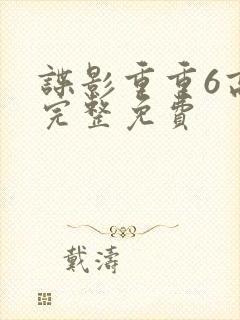 諜影重重6高
完整免費
戴濤